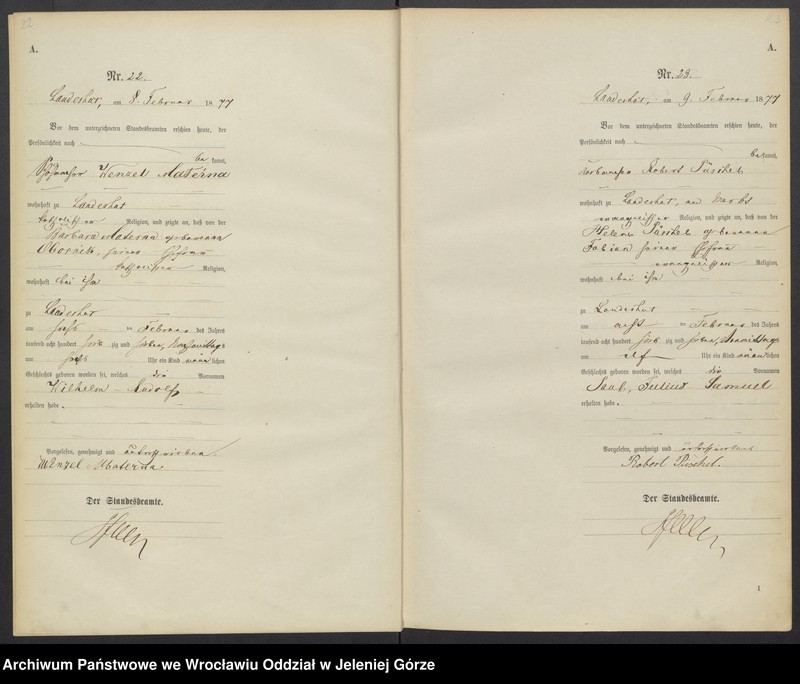 22
A.
Nr. 22.
Landeshut, am 8. Februar 1877
Vor dem unterzeichneten Standesbeamten erschien heute, der
Persönlichkeit nach
bekannt,
Wenzel Materna
wohnhaft zu Landeshut
katholischer Religion, und zeigte an, daß von der
Barbara Materna geborenen
seiner Ehefrau
katholischer Religion,
wohnhaft bei ihm
zu Landeshut
am sechs ten Februar des Jahres
tausend acht hundert siebzig und sieben, Nachmittags
um sechs Uhr ein Kind männlichen
Geschlechts geboren worden sei, welches die Vornamen
Wilhelm Rudolf
erhalten habe.
Vorgelesen, genehmigt und unterschrieben
Wenzel Materna
Der Standesbeamte.
A.
Nr. 23.
Landeshut, am 9. Februar 1877
Vor dem unterzeichneten Standesbeamten erschien heute, der
Persönlichkeit nach
bekannt,
Robert Püschel
wohnhaft zu Landeshut, am Markt
evangelischer Religion, und zeigte an, daß von der
Helene Püschel geborenen
Fabian seiner Ehefrau
evangelischer Religion,
wohnhaft bei ihm
zu Landeshut
am acht ten Februar des Jahres
tausend acht hundert siebzig und sieben, Vormittags
um elf Uhr ein Kind männlichen
Geschlechts geboren worden sei, welches die Vornamen
Paul, Julius Samuel
erhalten habe.
Vorgelesen, genehmigt und unterschrieben
Robert Püschel.
Der Standesbeamte.
1
Archiwum Państwowe we Wrocławiu Oddział w Jeleniej Górze